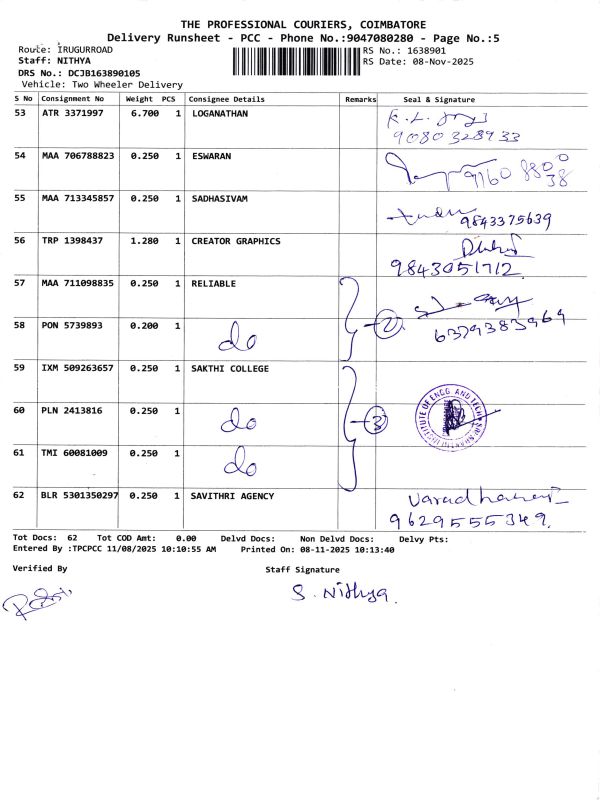 THE PROFESSIONAL COURIERS, COIMBATORE
Delivery Runsheet - PCC - Phone No.:9047080280 - Page No.:5
Route: IRUGURROAD RS No.: 1638901
Staff: NITHYA RS Date: 08-Nov-2025
DRS No.: DCJB163890105
Vehicle: Two Wheeler Delivery
S No Consignment No Weight PCS Consignee Details Remarks Seal & Signature
53 ATR 3371997 6.700 1 LOGANATHAN
9080328933
54 MAA 706788823 0.250 1 ESWARAN
55 MAA 713345857 0.250 1 SADHASIVAM
9843375639
56 TRP 1398437 1.280 1 CREATOR GRAPHICS
9843051712
57 MAA 711098835 0.250 1 RELIABLE
58 PON 5739893 0.200 1 do 2 6379383969
59 IXM 509263657 0.250 1 SAKTHI COLLEGE
60 PLN 2413816 0.250 1 do 3
61 TMI 60081009 0.250 1 do
62 BLR 5301350297 0.250 1 SAVITHRI AGENCY
9629555349.
Tot Docs: 62 Tot COD Amt: 0.00 Delvd Docs: Non Delvd Docs: Delvy Pts:
Entered By :TPCPCC 11/08/2025 10:10:55 AM Printed On: 08-11-2025 10:13:40
Verified By Staff Signature
S. Nithya.